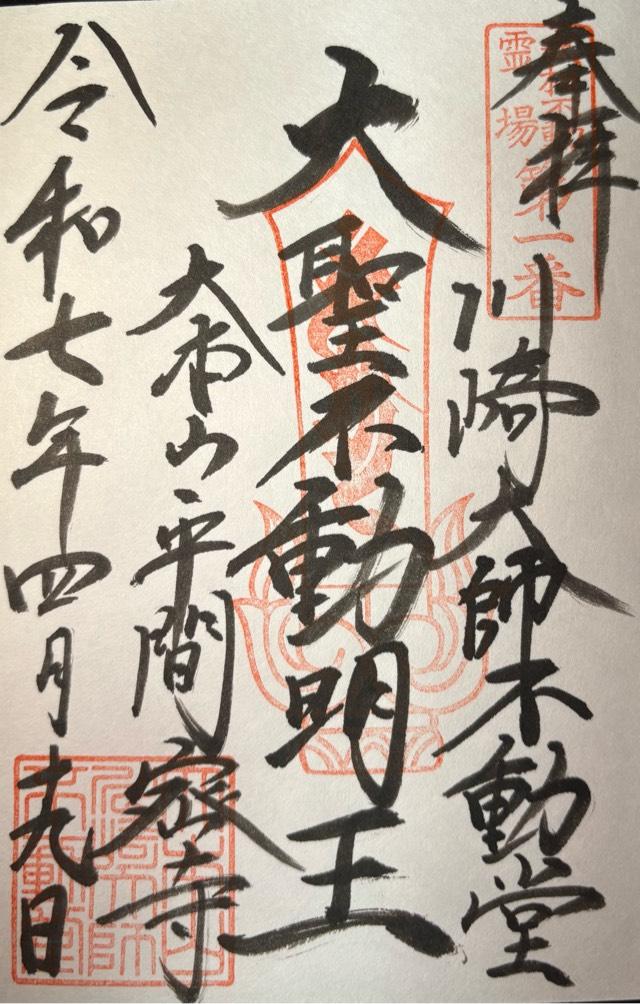 奉拝
霊場
第一番
川崎大師不動堂
大聖不動明王
大本山平間密寺
令和七年四月十九日